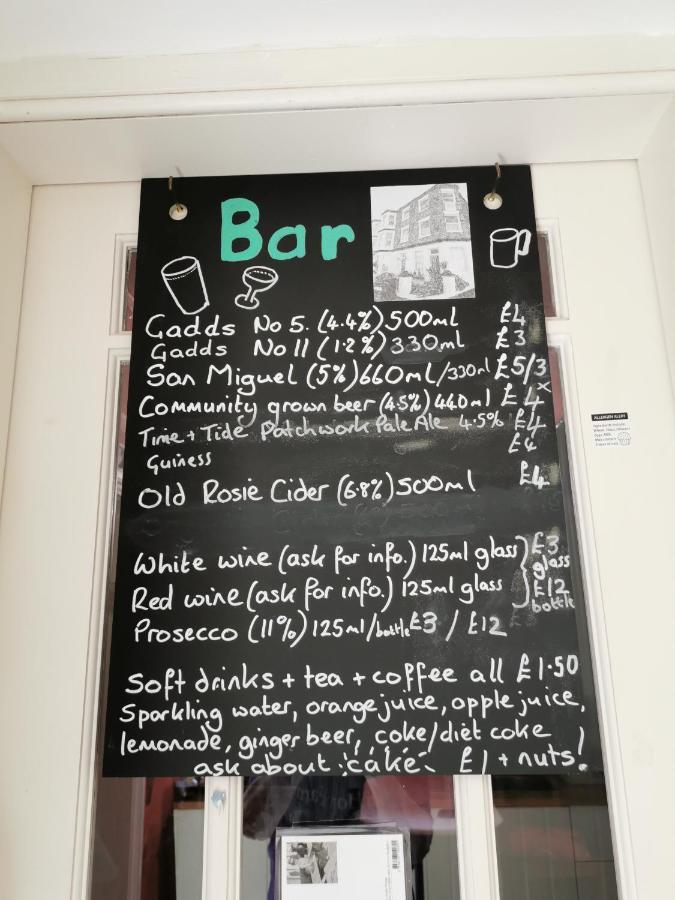 Bar
Gadds No 5. (4.4%) 500ml £4
Gadds No 11 (1.2%) 330ml £3
San Miguel (5%) 660ml/330ml £5/3
Community grown beer (4.5%) 440ml £4
Time + Tide Patchwork Pale Ale 4.5% £4
Guiness £4
Old Rosie Cider (6.8%) 500ml £4
White wine (ask for info.) 125ml glass £3 glass
Red wine (ask for info.) 125ml glass £12 bottle
Prosecco (11%) 125ml/bottle £3 / £12
Soft drinks + tea + coffee all £1.50
Sparkling water, orange juice, apple juice,
lemonade, ginger beer, coke/diet coke
ask about cake £1 + nuts!
ALLERGEN ALERT